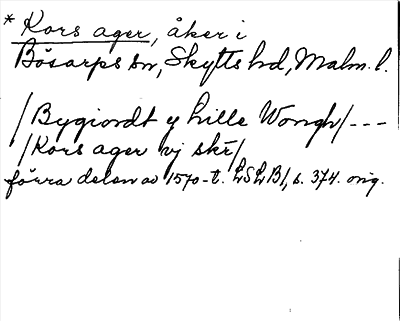 * Kors ager, åker i
Bösarps sn, Skytts hd, Malm. l.
/Bygiordt y lille Wongh/ ---
/Kors ager vj skr̄/
förra delen av 1570-t. LSLB1, s. 374. orig.